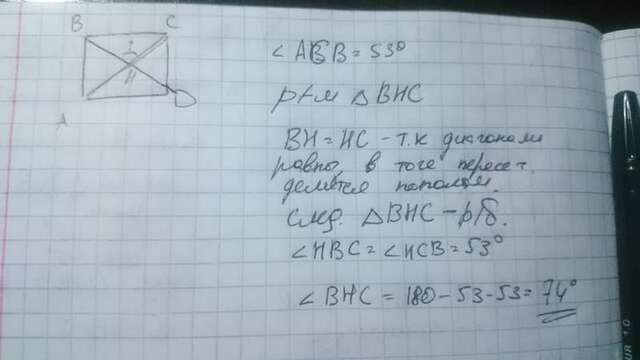 B C
H
A D
∠ АСВ = 53°
р/м △ BHC
BH = HC – т.к диагонали
равны, в точе пересет.
делятся пополам.
след. △BHC – р/б.
∠HBC = ∠HCB = 53°
∠BHC = 180 – 53 – 53 = 74°
1.0